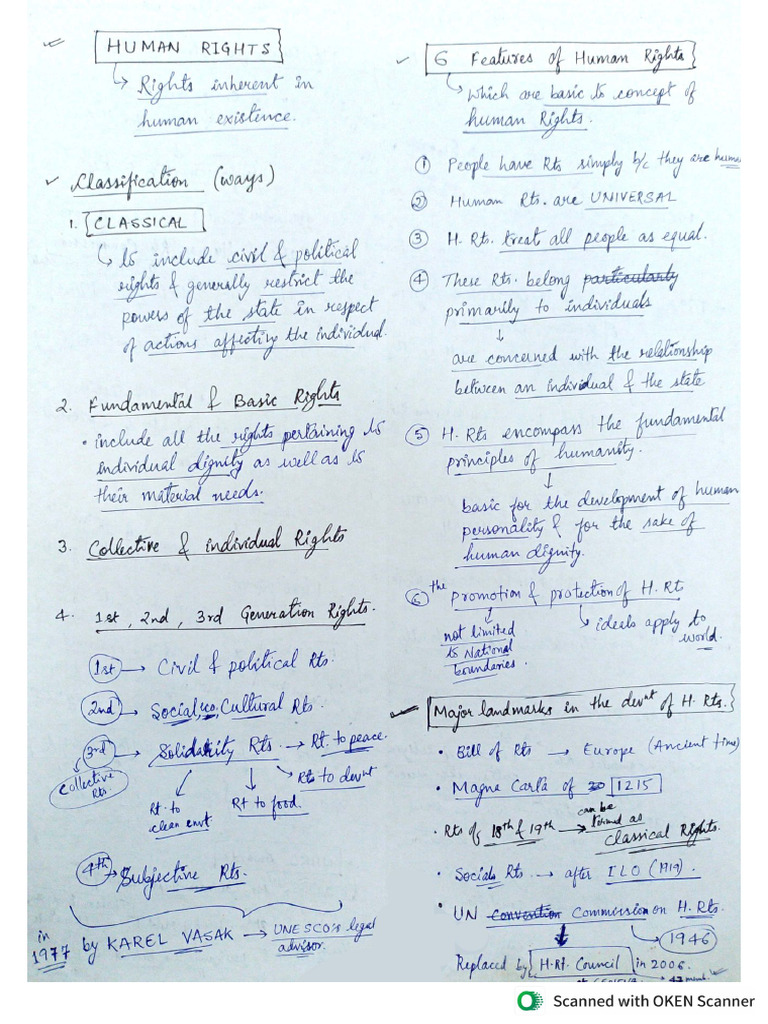 HUMAN RIGHTS
Rights inherent in
human existence.
Classification (ways)
1. CLASSICAL
to include civil & political
rights & generally restrict the
powers of the state in respect
of actions affecting the individual.
2. Fundamental & Basic Rights
• include all the rights pertaining to
individual dignity as well as to
their material needs.
3. Collective & individual Rights
4. 1st, 2nd, 3rd Generation Rights.
1st → Civil & political Rts.
2nd → Social, eco, Cultural Rts.
3rd → Solidarity Rts → Rt. to peace.
Collective
Rts.
Rts to devnt
Rt. to
clean envt.
Rt to food.
4th → Subjective Rts.
in
1977 by KAREL VASAK → UNESCO's legal
advisor.
6 Features of Human Rights
Which are basic to concept of
human Rights.
① People have Rts simply b/c they are human
② Human Rts. are UNIVERSAL
③ H. Rts. treat all people as equal.
④ These Rts. belong particularly
primarily to individuals
↓
are concerned with the relationship
between an individual & the state
⑤ H. Rts encompass the fundamental
principles of humanity.
↓
basic for the development of human
personality & for the sake of
human dignity.
⑥ the promotion & protection of H. Rts
not limited
to National
boundaries.
ideals apply to
world.
Major landmarks in the devnt of H. Rts.
• Bill of Rts → Europe (Ancient time)
• Magne Carla of 1215
• Rts of 18th & 19th → can be
termed as
Classical Rights.
• Socials Rts → after ILO (1919).
• UN Convention Commission on H. Rts.
1946
Replaced by H. Rt. Council in 2006.
47 memb.
Scanned with OKEN Scanner